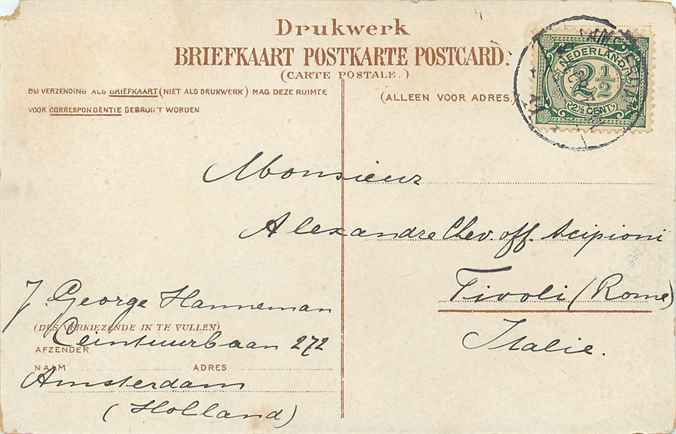 Drukwerk
BRIEFKAART POSTKARTE POSTCARD.
(CARTE POSTALE.)
BIJ VERZENDING ALS BRIEFKAART (NIET ALS DRUKWERK) MAG DEZE RUIMTE
VOOR CORRESPONDENTIE GEBRUIKT WORDEN
(ALLEEN VOOR ADRES)
NEDERLAND
2½
(2½ CENT)
Monsieur
Alexandre Chev. off. Scipioni
Tivoli (Rome)
Italie.
J. George Hanneman
(DES VERKIEZENDE IN TE VULLEN)
Ceintuurbaan 272
AFZENDER
NAAM ADRES
Amsterdam
(Holland)